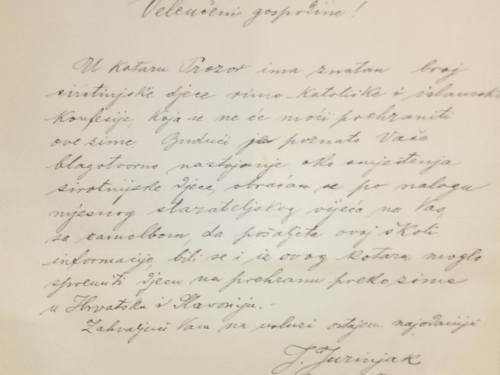 Veleučeni gospodine!
U kotaru Prozor ima znatan broj
sirotinjske djece rimo-katoličke i islamske
konfesije, koja se ne će moći prehraniti
ove zime. Budući je poznato Vaše
blagotvorno nastojanje oko smještenja
sirotinjske djece, obraćam se po nalogu
mjesnog starateljskog vijeća na Vas,
sa zamolbom, da pošaljete ovoj školi
informacije bili se i iz ovog kotara moglo
spremiti djecu na prehranu preko zime
u Hrvatsku i Slavoniju.-
Zahvaljući Vam na volusi ostajem najodaniji
J. Jurinjak